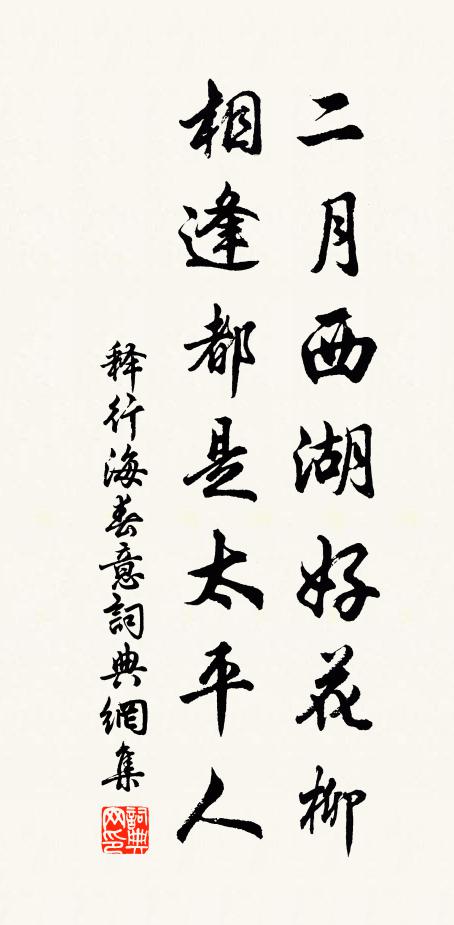 二月西湖好花柳
相逢都是太平人
释行海春意詞典網集
詞典網印